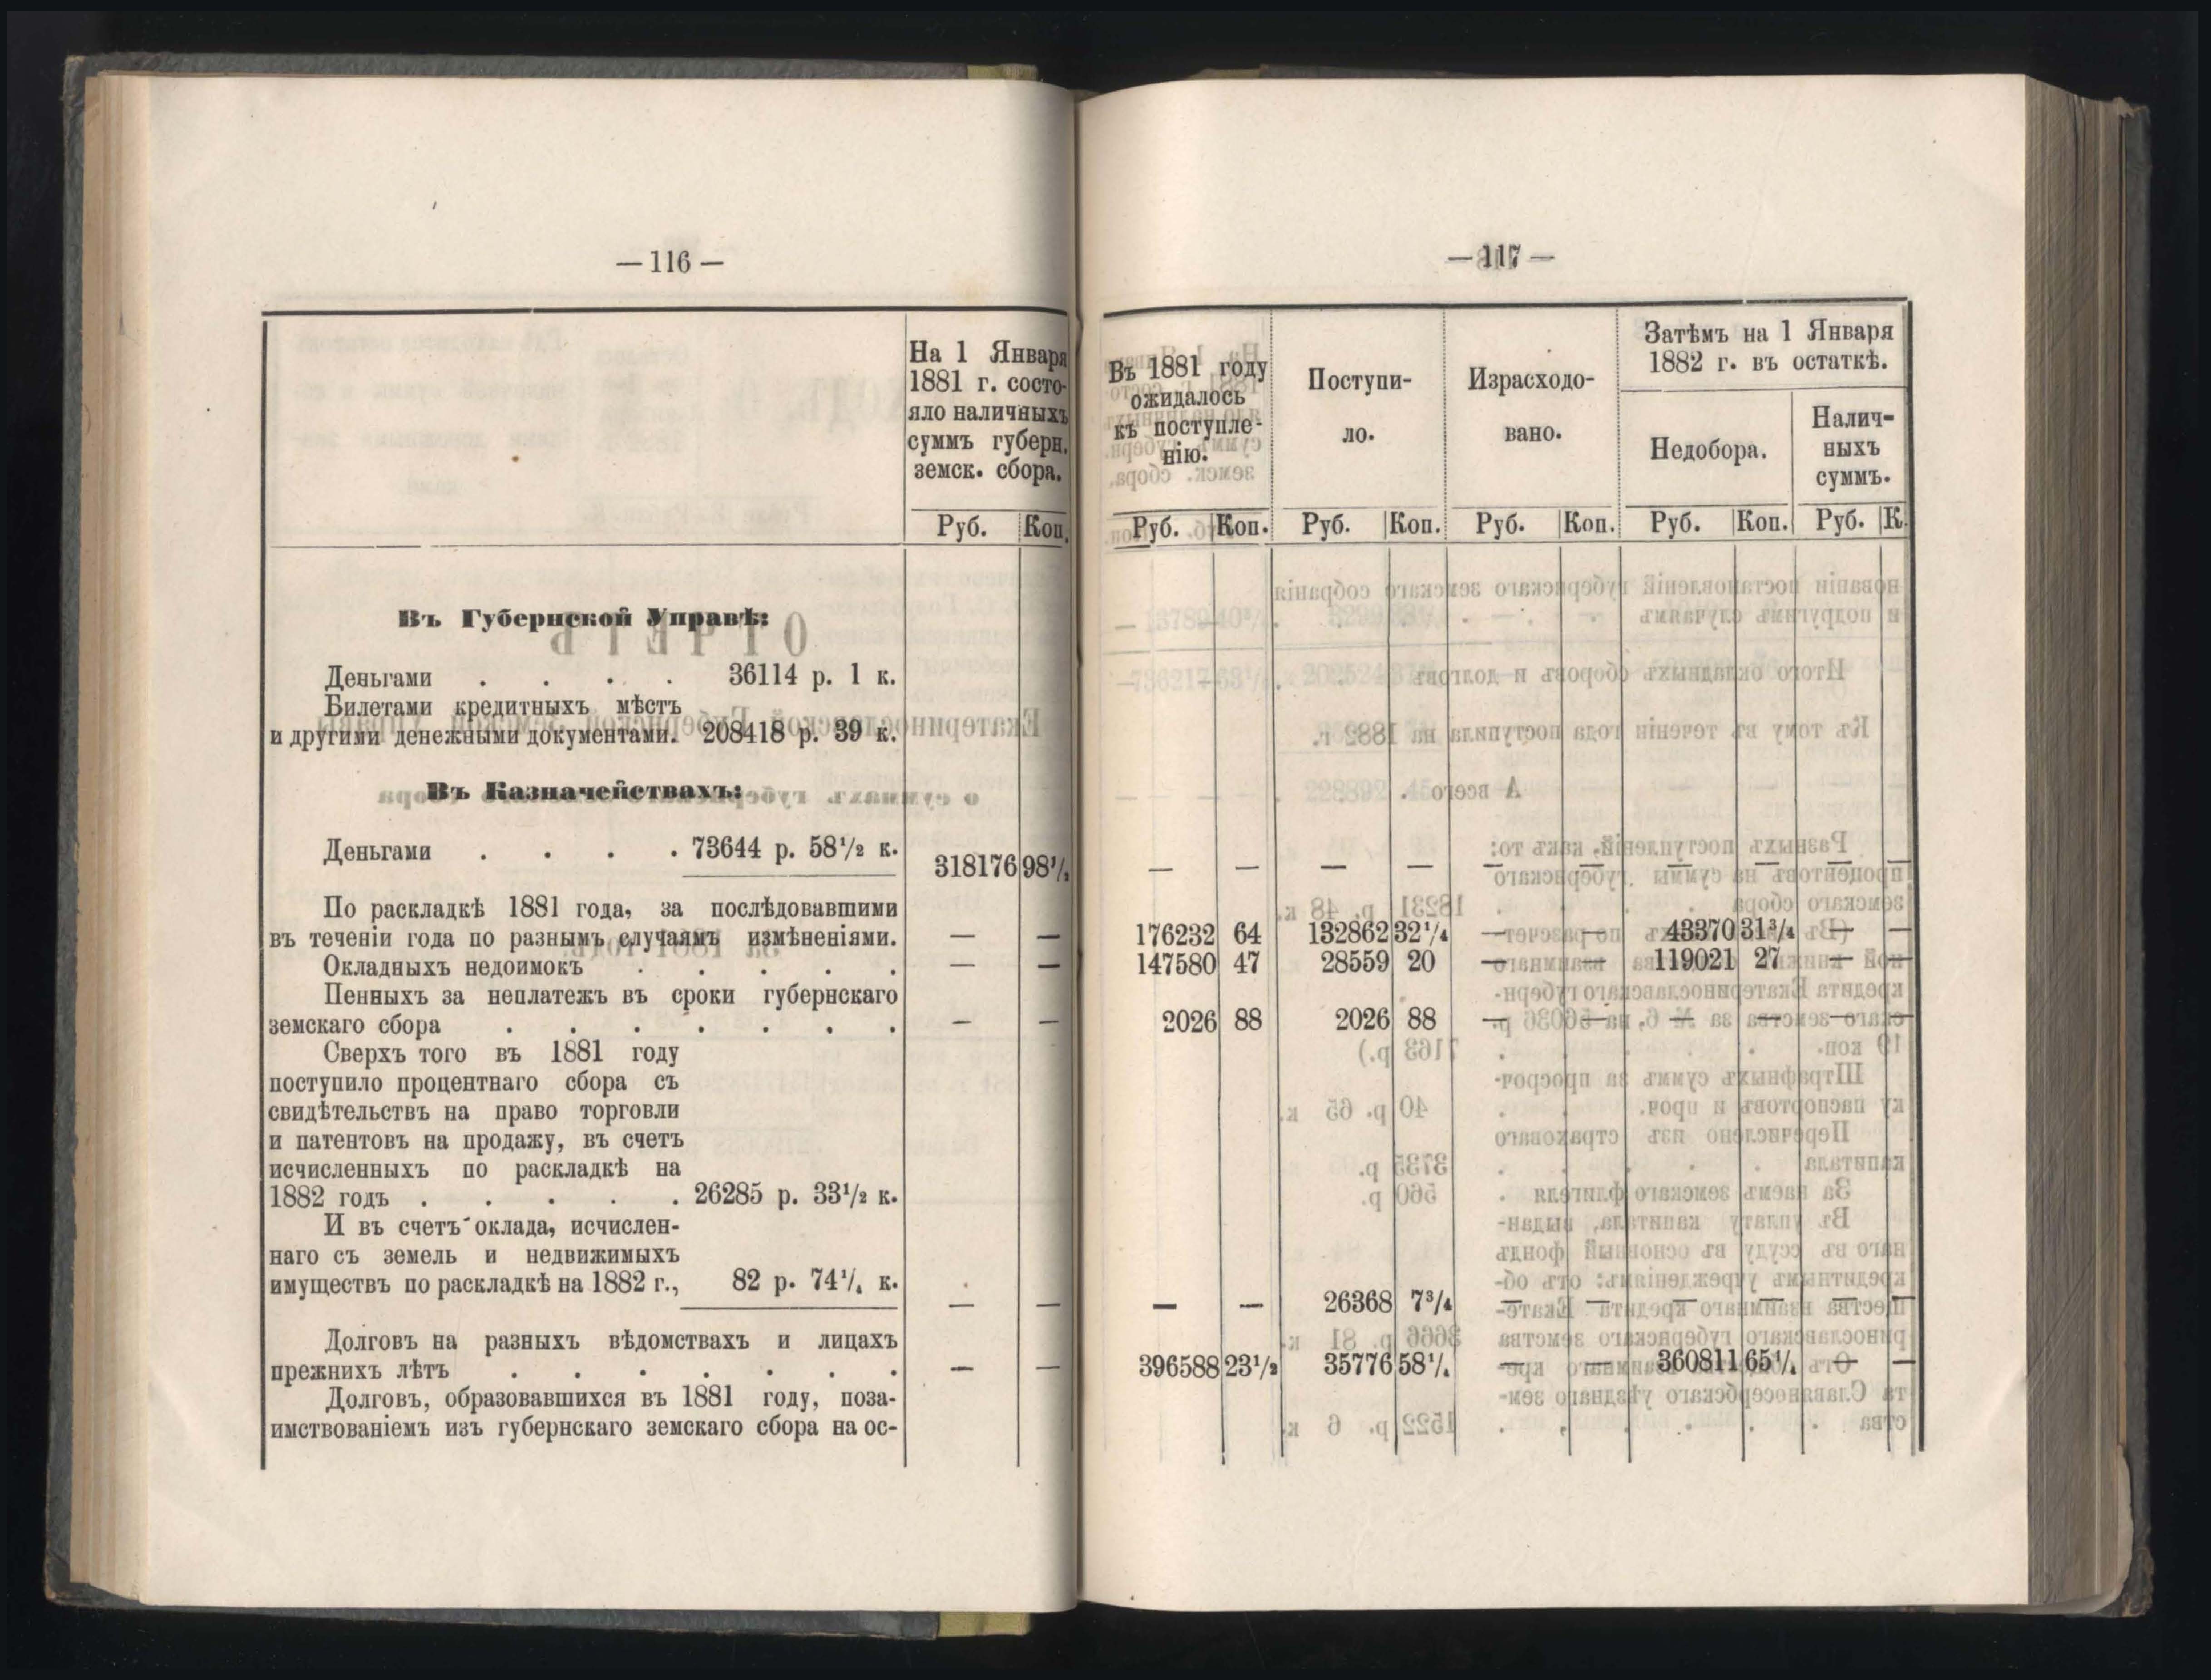 — 116 —
На 1 Января
1881 г. состо-
яло наличныхъ
суммъ губерн.
земск. сбора.
Руб. Коп.
Въ Губернской Управѣ:
Деньгами . . . . 36114 р. 1 к.
Билетами кредитныхъ мѣстъ
и другими денежными документами. 208418 р. 39 к.
Въ Казначействахъ:
Деньгами . . . . 73644 р. 58½ к.
318176 98½
По раскладкѣ 1881 года, за послѣдовавшими
въ теченіи года по разнымъ случаямъ измѣненіями. — —
Окладныхъ недоимокъ . . . . . — —
Пенныхъ за неплатежъ въ сроки губернскаго
земскаго сбора . . . . . . . — —
Сверхъ того въ 1881 году
поступило процентнаго сбора съ
свидѣтельствъ на право торговли
и патентовъ на продажу, въ счетъ
исчисленныхъ по раскладкѣ на
1882 годъ . . . . . 26285 р. 33½ к.
И въ счетъ оклада, исчислен-
наго съ земель и недвижимыхъ
имуществъ по раскладкѣ на 1882 г., 82 р. 74¼ к.
— —
Долговъ на разныхъ вѣдомствахъ и лицахъ
прежнихъ лѣтъ . . . . . . . — —
Долговъ, образовавшихся въ 1881 году, поза-
имствованіемъ изъ губернскаго земскаго сбора на ос-
— 117 —
Въ 1881 году
ожидалось
къ поступле-
нію.
Поступи-
ло.
Израсходо-
вано.
Затѣмъ на 1 Января
1882 г. въ остаткѣ.
Недобора.
Налич-
ныхъ
суммъ.
Руб. Коп. Руб. Коп. Руб. Коп. Руб. Коп. Руб. К.
— — — — — — — — — —
176232 64 132862 32¼ — — 43370 31¾ — —
147580 47 28559 20 — — 119021 27 — —
2026 88 2026 88 — — — — — —
— — 26368 7¾ — — — — — —
396588 23½ 35776 58¼ — — 360811 65¼ — —